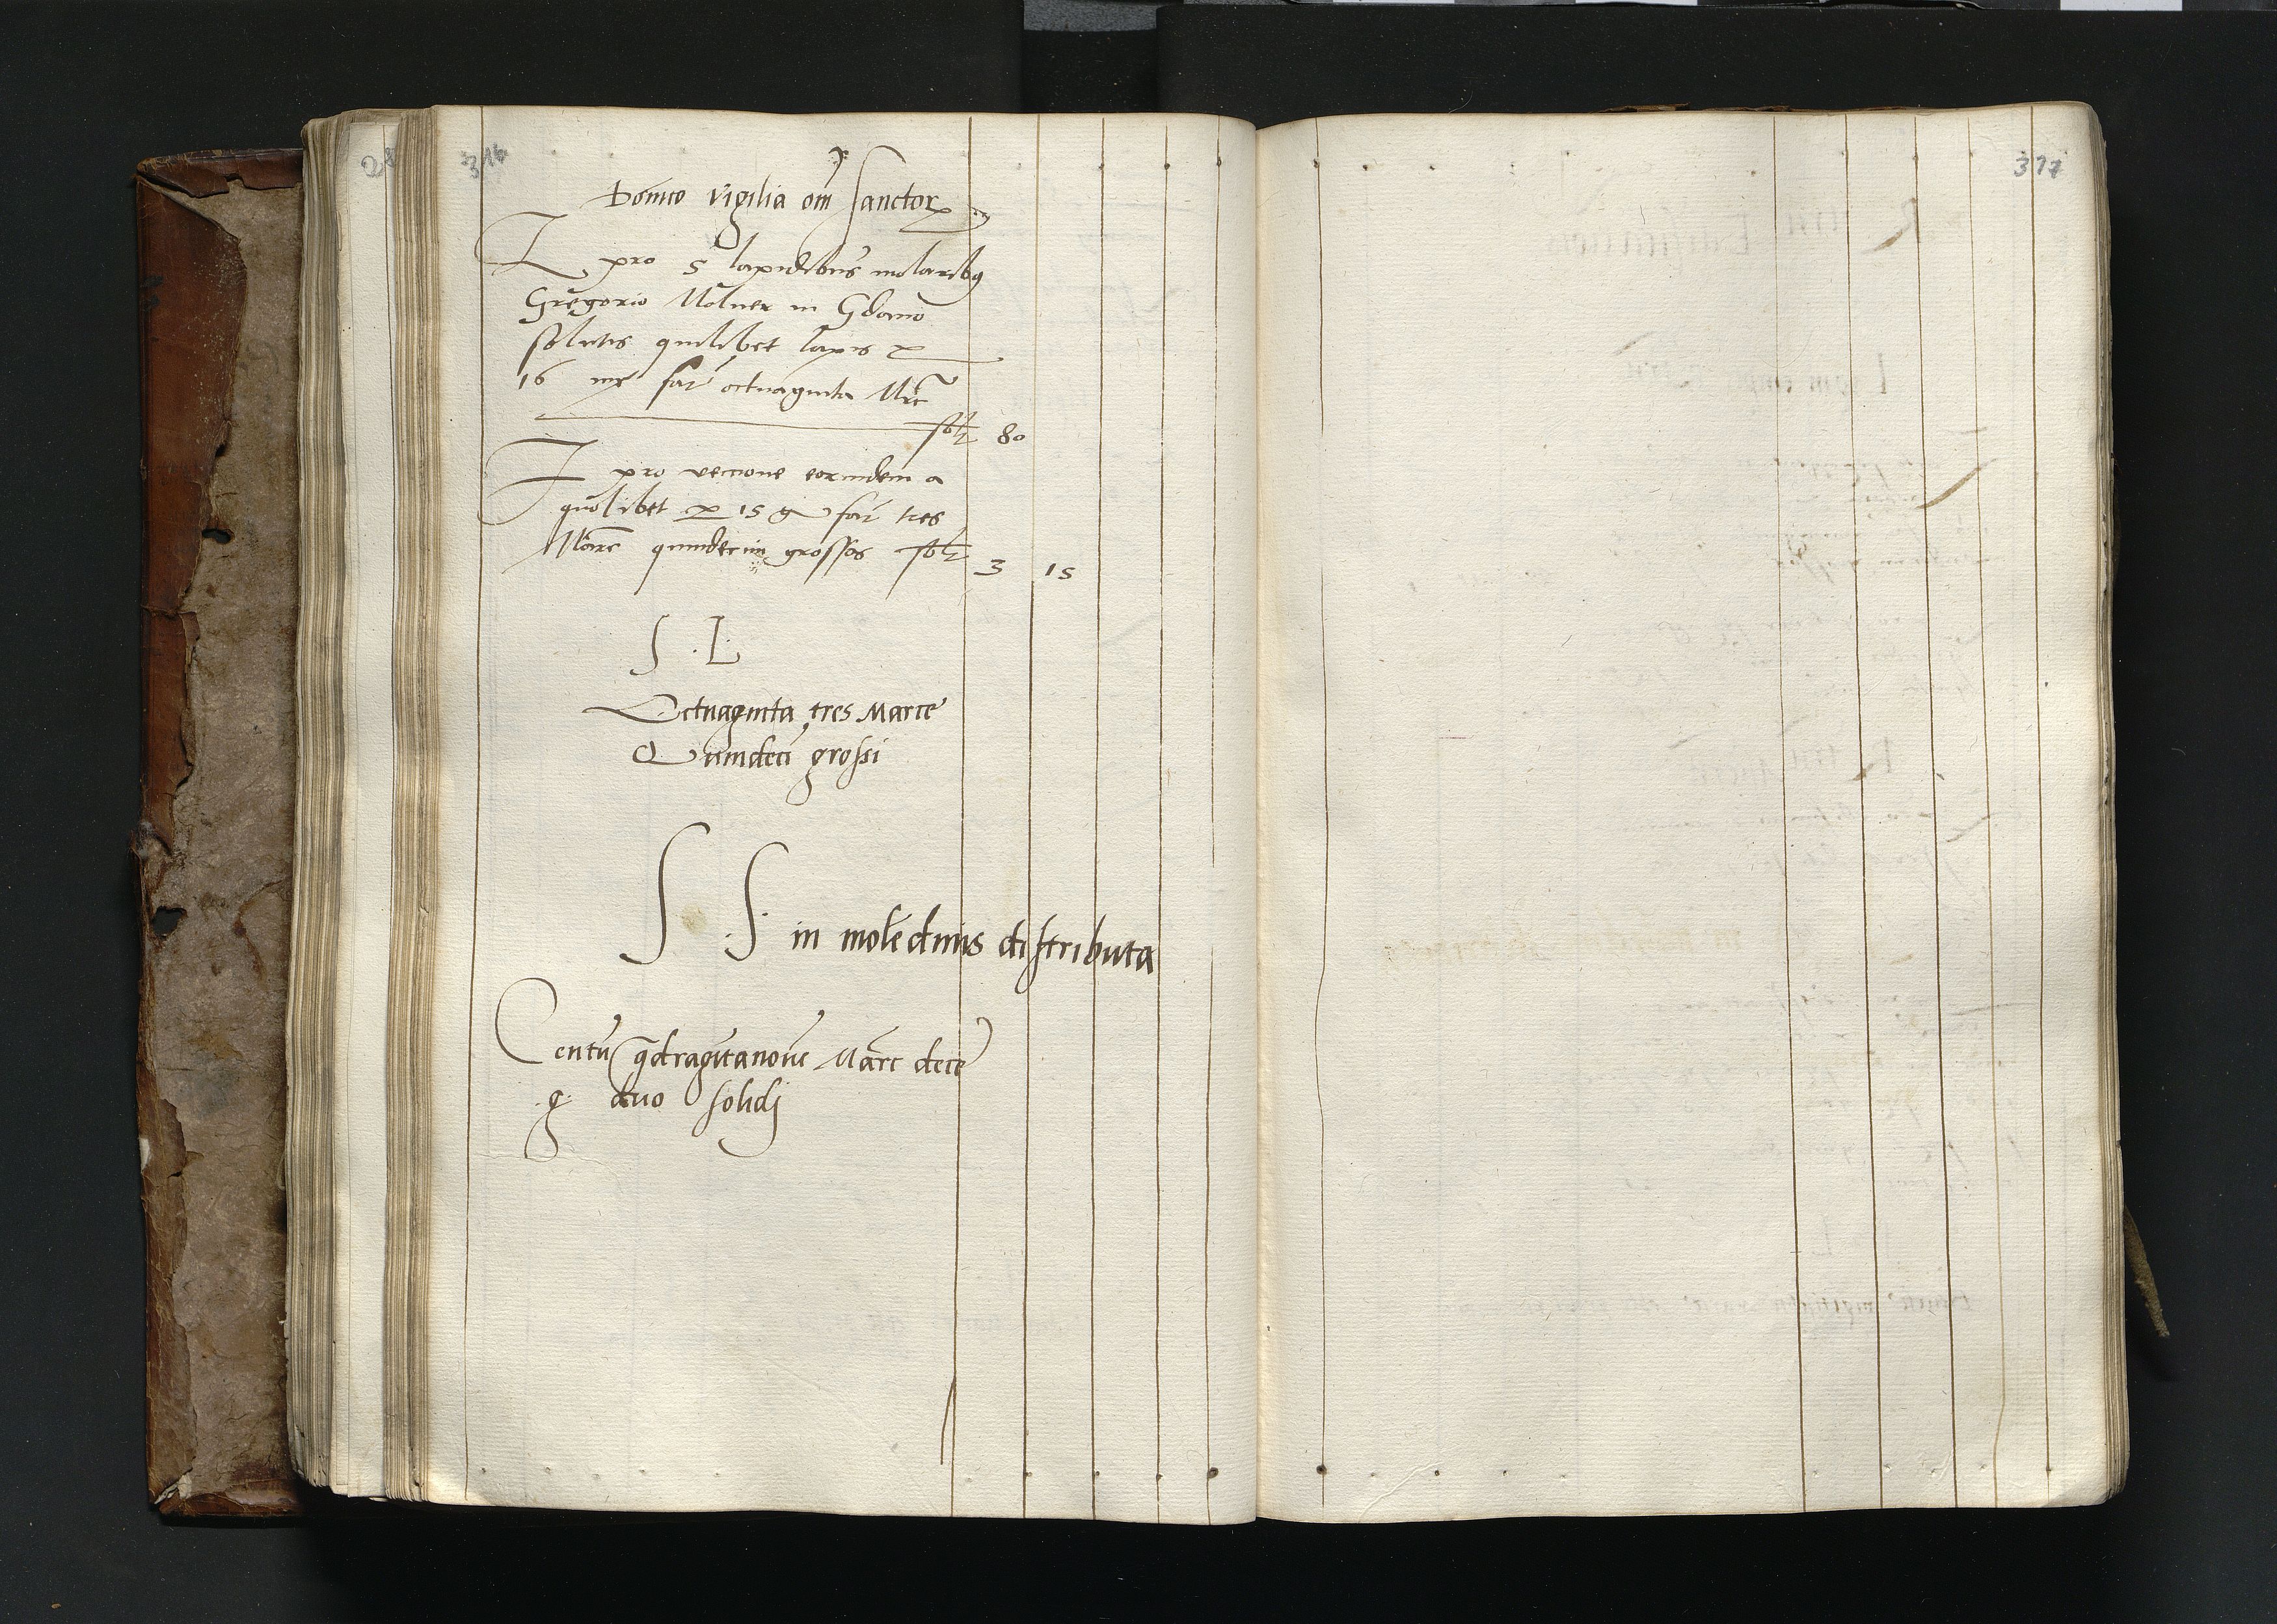 316
Domico vigilia om̄ Sanctor
It pro 5 lapidibus molaribꝫ
Gregorio Molner in Gdano
solutis quilibet lapis ꝑ
16 mr̄ fac̄ octuaginta Mrc̄
solt 80
It pro vectione eorundem a
quolibet ꝑ 15 g fac̄ tres
Marc̄ quindecim grossos solt 3 15
S . L
Octuaginta tres Marce
Quindeci grossi
S . S . in molēdinis distributa
Centū qdragītanove Marc dece
g. duo solidj
377